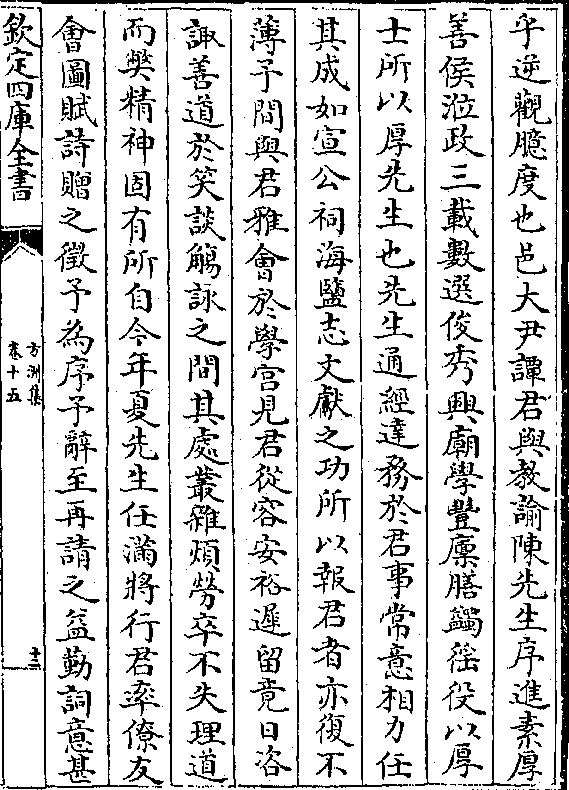 乎逆觀臆度也邑大尹譚君與教諭陳先生序進素厚
善侯涖政三載數選俊秀興廟學豐廪膳蠲徭役以厚
士所以厚先生也先生通經達務於君事常意相力任
其成如宣公祠海鹽志文獻之功所以報君者亦復不
薄予間與君雅會於學宫見君從容安裕遲留竟日咨
諏善道於笑談觴詠之間其處叢雜煩勞卒不失理道
而弊精神固有所自今年夏先生任滿將行君率僚友
會圖賦詩贈之徵予為序予辭至再請之益勤詞意甚
欽定四庫全書
方洲集
卷十五
十三